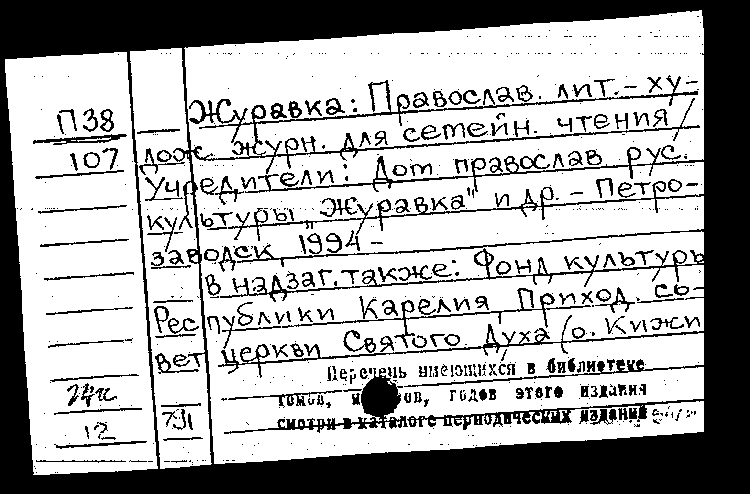 П38
107
Журавка: Православ. лит.-ху-
дож. журн. для семейн. чтения /
Учредители: Дом православ. рус.
культуры „Журавка" и др. - Петро-
заводск, 1994 -
В надзаг. также: Фонд культуры
Республики Карелия, Приход. со-
вет церкви Святого Духа (о. Кижи
Перечень имеющихся в библиотеке
томов, годов этого издания
смотри в каталоге периодических изданий
12
731